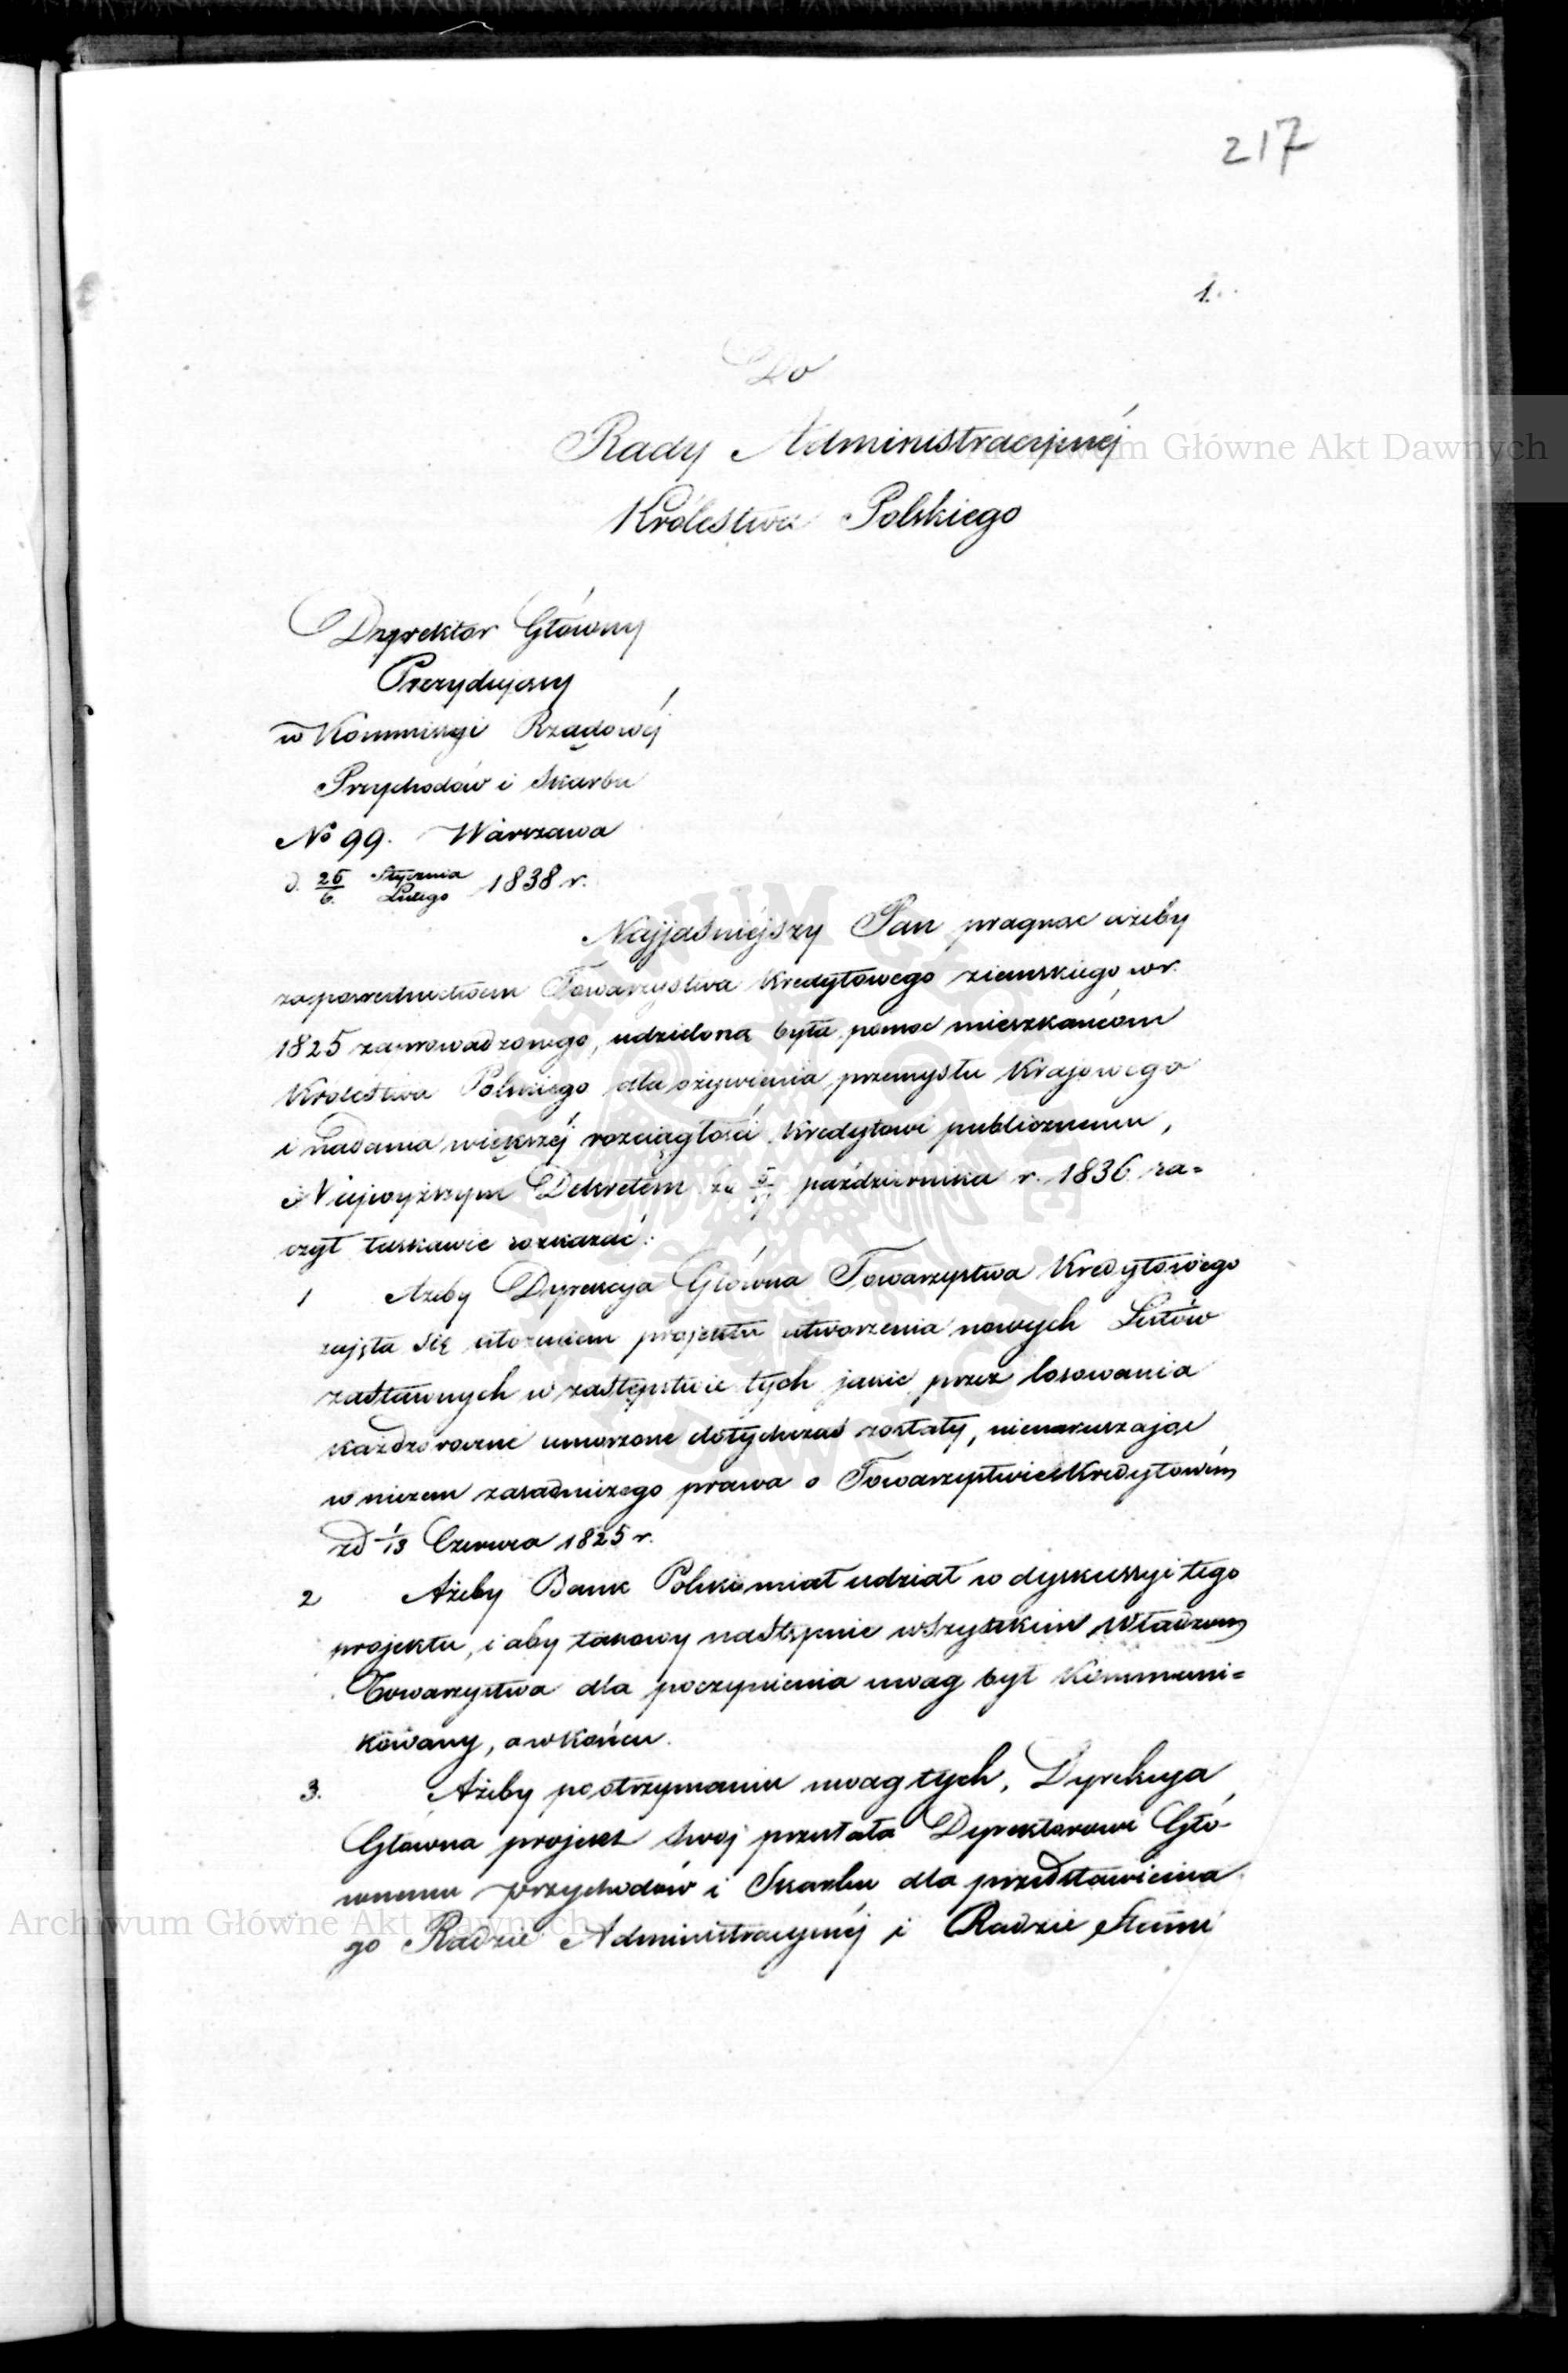 217
1.
Do
Rady Administracyjnéj
Królestwa Polskiego
Dyrektor Główny
Prezydujący
w Kommissyi Rządowéj
Przychodów i Skarbu
No 99. Warszawa
d. 25/6. Stycznia/Lutego 1838 r.
Najjaśniéjszy Pan pragnąc ażeby
za pośrednictwem Towarzystwa Kredytowego ziemskiego w r.
1825 zaprowadzonego, udzieloną była pomoc mieszkańcom
Królestwa Polskiego dla ożywienia przemysłu Krajowego
i nadania większéj rozciągłości Kredytowi publicznemu,
Najwyższym Dekretem października r. 1836 ra=
czył łaskawie rozkazać:
1 Ażeby Dyrekcja Główna Towarzystwa Kredytowego
zajęła się ułożeniem projektu utworzenia nowych Listów
zastawnych w zastępstwie tych jakie przez losowania
każdoroczne umorzone dotychczas zostały, nienaruszając
w niczem zasadniczego prawa o Towarzystwie Kredytowém
zd 1/13 Czerwca 1825 r.
2 Ażeby Bank Polski miał udział w dyskussyi tego
projektu, i aby takowy następnie wszystkim Władzom
Towarzystwa dla poczynienia uwag był Kommuni=
kowany, a w końcu.
3. Ażeby po otrzymaniu uwag tych, Dyrekcya
Główna projekt swój przesłała Dyrektorowi Głó-
wnemu przychodów i Skarbu dla przedstawienia
go Radzie Administracyjnéj i Radzie Stanu
Archiwum Główne Akt Dawnych
Archiwum Główne Akt Dawnych